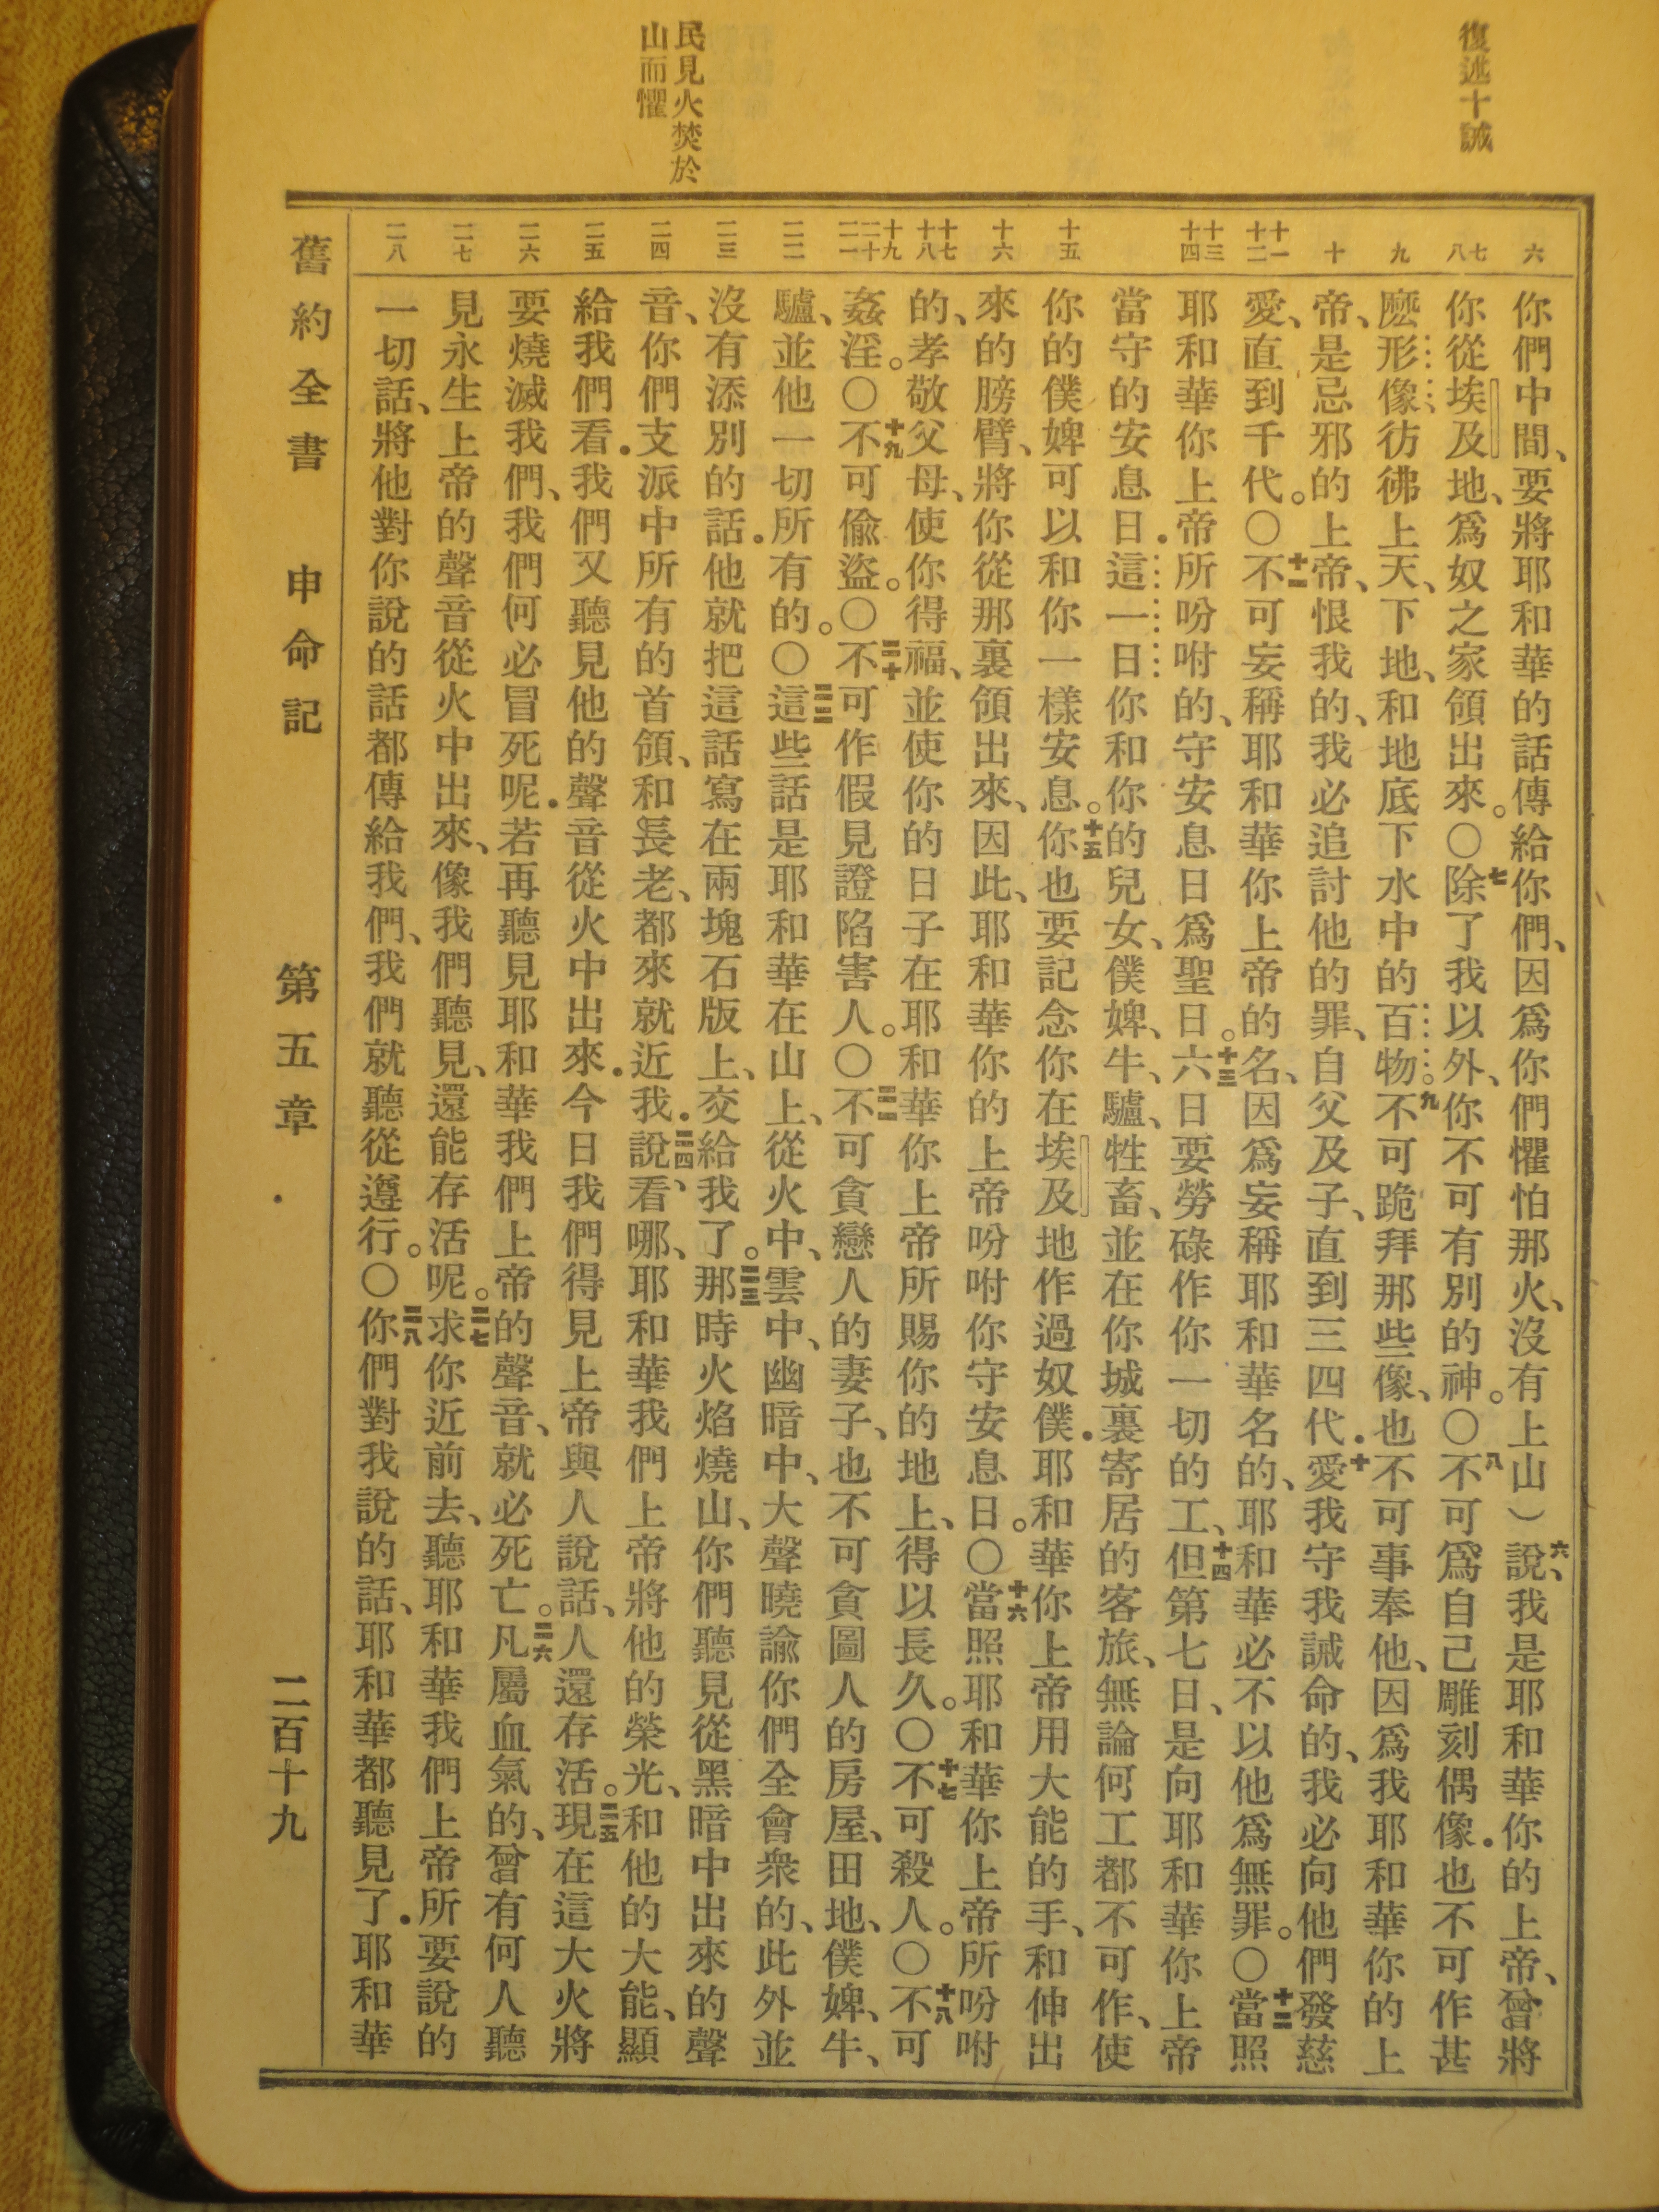 復述十誡
民見火焚於
山而懼
六
七
八
九
十
十一
十二
十三
十四
十五
十六
十七
十八
十九
二十
二一
二二
二三
二四
二五
二六
二七
二八
你們中間、要將耶和華的話傳給你們、因爲你們懼怕那火、沒有上山）六說、我是耶和華你的上帝、曾將
你從埃及地、爲奴之家領出來。〇七除了我以外、你不可有別的神。〇八不可爲自己雕刻偶像．也不可作甚
麽形像彷彿上天、下地、和地底下水中的百物。九不可跪拜那些像、也不可事奉他、因爲我耶和華你的上
帝、是忌邪的上帝、恨我的、我必追討他的罪、自父及子、直到三四代．十愛我守我誡命的、我必向他們發慈
愛、直到千代。〇十一不可妄稱耶和華你上帝的名、因爲妄稱耶和華名的、耶和華必不以他爲無罪。〇十二當照
耶和華你上帝所吩咐的、守安息日爲聖日。十三六日要勞碌作你一切的工、十四但第七日、是向耶和華你上帝
當守的安息日．這一日你和你的兒女、僕婢、牛、驢、牲畜、並在你城裏寄居的客旅、無論何工都不可作、使
你的僕婢可以和你一樣安息。十五你也要記念你在埃及地作過奴僕．耶和華你上帝用大能的手、和伸出
來的膀臂、將你從那裏領出來、因此、耶和華你的上帝吩咐你守安息日。〇十六當照耶和華你上帝所吩咐
的、孝敬父母、使你得福、並使你的日子在耶和華你上帝所賜你的地上、得以長久。〇十七不可殺人。〇十八不可
姦淫。〇十九不可偷盜。〇二十不可作假見證陷害人。〇二一不可貪戀人的妻子、也不可貪圖人的房屋、田地、僕婢、牛、
驢、並他一切所有的。〇二二這些話是耶和華在山上、從火中、雲中、幽暗中、大聲曉諭你們全會衆的、此外並
沒有添別的話．他就把這話寫在兩塊石版上、交給我了。二三那時火焰燒山、你們聽見從黑暗中出來的聲
音、你們支派中所有的首領、和長老、都來就近我．二四說、看哪、耶和華我們上帝將他的榮光、和他的大能、顯
給我們看．我們又聽見他的聲音從火中出來．今日我們得見上帝與人說話、人還存活。二五現在這大火將
要燒滅我們、我們何必冒死呢．若再聽見耶和華我們上帝的聲音、就必死亡。二六凡屬血氣的、曾有何人聽
見永生上帝的聲音從火中出來、像我們聽見、還能存活呢。二七求你近前去、聽耶和華我們上帝所要說的
一切話、將他對你說的話都傳給我們、我們就聽從遵行。〇二八你們對我說的話、耶和華都聽見了．耶和華
舊約全書　申命記　第五章　二百十九